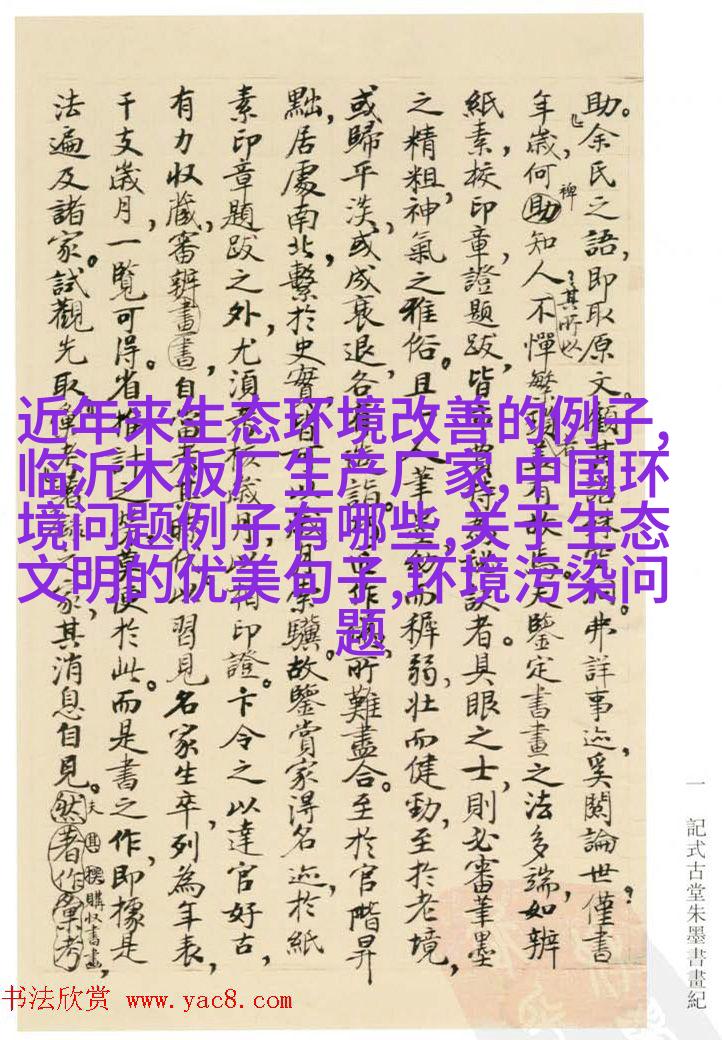 助。余氏之語，即取原文
年歲，何助知人，不憚繁
紙素，校印章，證題跋，皆
者。具眼之士，則必審筆墨
之精粗，神氣之雅俗。且一人筆
而穉弱，壯而健勁，至於老境，
或歸平淡，或成衰退，各有造詣
所難盡合。至於官階昇
黜，居處南北，繫於史實，皆可
故鑒賞家得名迹，於紙
素印章題跋之外，尤須考核歲月，以相印證。卞令之以達官好古，
有力收藏，審辨畫書，自富
習見名家生卒，列為年表，
干支歲月，一覽可得。省推計之
便於此。而是書之作，即據是
法遍及諸家。試觀先取
家，其消息自見。
然著作彙考
其撰購收書畫
弗詳事迹，奚關論世，僅書
夫鑒定書畫之法多端，如辨
近年来生态环境改善的例子,
临沂木板厂生产厂家,中国环
境问题例子有哪些,关于生态
文明的优美句子,环境污染问
题
一 記式古堂朱墨書畫紀
书法欣赏 www.yac8.com